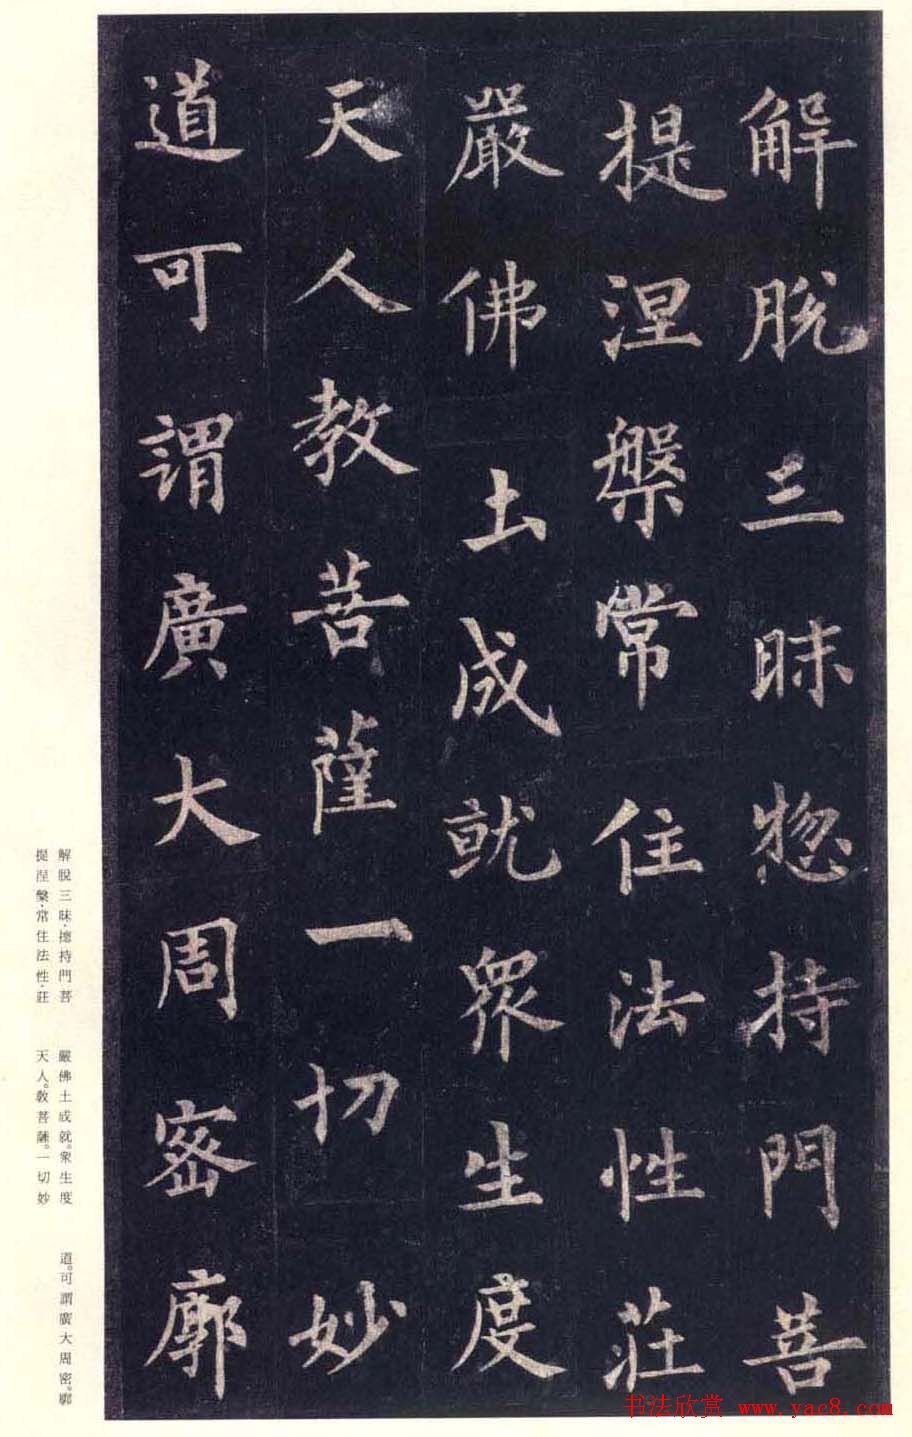 解脫三昧惣持門菩
提涅槃常住法性莊
嚴佛土成就眾生度
天人教菩薩一切妙
道可謂廣大周密廓
解脫三昧·摠持門菩
提涅槃·常住法性·莊
嚴佛土成就。衆生度
天人。教菩薩。一切妙
道。可謂廣大周密。廓
书法欣赏 www.yac8.com